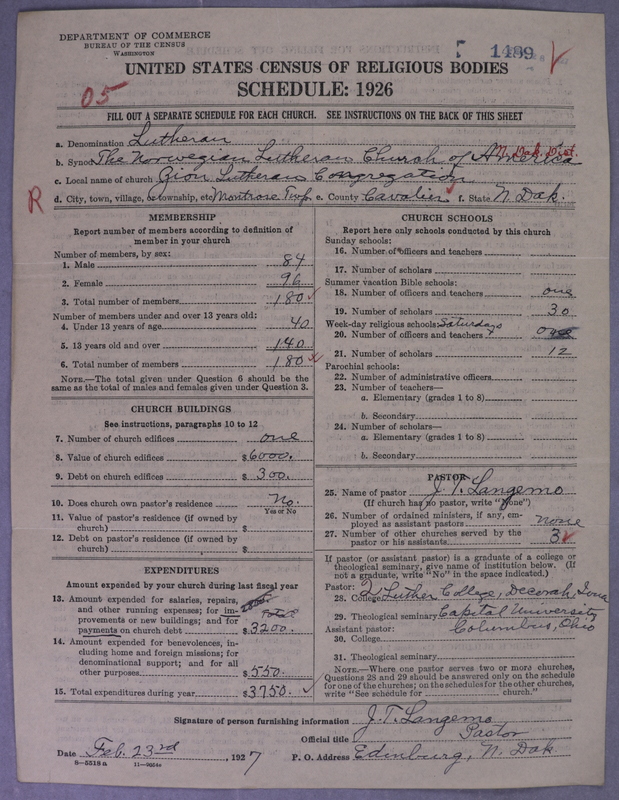 DEPARTMENT OF COMMERCE
BUREAU OF THE CENSUS
WASHINGTON
1489
UNITED STATES CENSUS OF RELIGIOUS BODIES
SCHEDULE: 1926
05
FILL OUT A SEPARATE SCHEDULE FOR EACH CHURCH. SEE INSTRUCTIONS ON THE BACK OF THIS SHEET
a. Denomination Lutheran
b. Synod The Norwegian Lutheran Church of America N. Dak. Dist.
c. Local name of church Zion Lutheran Congregation
R
d. City, town, village, or township, etc. Montrose Twp. e. County Cavalier f. State N. Dak.
MEMBERSHIP
Report number of members according to definition of
member in your church
Number of members, by sex:
1. Male 84
2. Female 96
3. Total number of members 180
Number of members under and over 13 years old:
4. Under 13 years of age 40
5. 13 years old and over 140
6. Total number of members 180
NOTE.—The total given under Question 6 should be
same as the total of males and females given under Question 3.
CHURCH BUILDINGS
See instructions, paragraphs 10 to 12
7. Number of church edifices one
8. Value of church edifices $6000.
9. Debt on church edifices $300.
10. Does church own pastor's residence No.
Yes or No
11. Value of pastor's residence (if owned by
church) $
12. Debt on pastor's residence (if owned by
church) $
EXPENDITURES
Amount expended by your church during last fiscal year
13. Amount expended for salaries, repairs,
and other running expenses; for im-
provements or new buildings; and for Total
payments on church debt $3200.
14. Amount expended for benevolences, in-
cluding home and foreign missions; for
denominational support; and for all
other purposes $550.
15. Total expenditures during year $3750.
CHURCH SCHOOLS
Report here only schools conducted by this church
Sunday schools:
16. Number of officers and teachers
17. Number of scholars
Summer vacation Bible schools:
18. Number of officers and teachers one
19. Number of scholars 30
Week-day religious schools: Saturdays
20. Number of officers and teachers one
21. Number of scholars 12
Parochial schools:
22. Number of administrative officers
23. Number of teachers—
a. Elementary (grades 1 to 8)
b. Secondary
24. Number of scholars—
a. Elementary (grades 1 to 8)
b. Secondary
PASTOR
25. Name of pastor J. T. Langemo
(If church has no pastor, write "None")
26. Number of ordained ministers, if any, em-
ployed as assistant pastors none
27. Number of other churches served by the
pastor or his assistants 3
If pastor (or assistant pastor) is a graduate of a college or
theological seminary, give name of institution below. (If
not a graduate, write "No" in the space indicated.)
Pastor:
28. College Luther College, Decorah, Iowa
29. Theological seminary Capital University
Assistant pastor: Columbus, Ohio
30. College
31. Theological seminary
NOTE.—Where one pastor serves two or more churches,
Questions 28 and 29 should be answered only on the schedule
for one of the churches; on the schedules for the other churches,
write "See schedule for church."
Signature of person furnishing information J. T. Langemo
Official title Pastor
Date Feb. 23rd, 1927 P. O. Address Edinburg, N. Dak.
8—5518 a